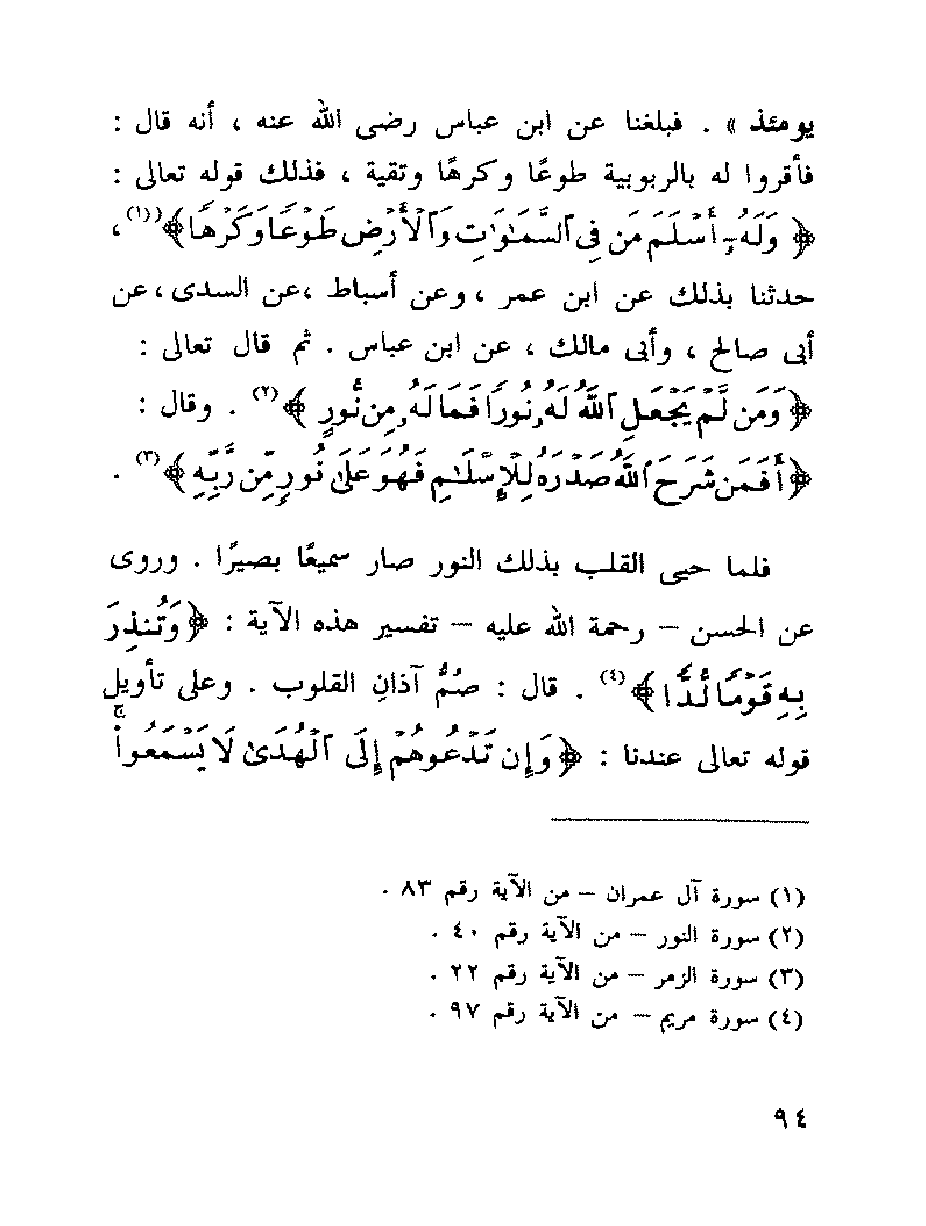 يومئذ » . فبلغنا عن ابن عباس رضى الله عنه ، أنه قال :
فأقروا له بالربوبية طوعًا وكرهًا وتقية ، فذلك قوله تعالى :
﴿ وَلَهُۥٓ أَسْلَمَ مَن فِى ٱلسَّمَٰوَٰتِ وَٱلْأَرْضِ طَوْعًا وَكَرْهًا ﴾(١) ،
حدثنا بذلك عن ابن عمر ، وعن أسباط ،عن السدى ،عن
أبى صالح ، وأبى مالك ، عن ابن عباس . ثم قال تعالى :
﴿ وَمَن لَّمْ يَجْعَلِ ٱللَّهُ لَهُۥ نُورًا فَمَا لَهُۥ مِن نُّورٍ ﴾(٢) . وقال :
﴿ أَفَمَن شَرَحَ ٱللَّهُ صَدْرَهُۥ لِلْإِسْلَٰمِ فَهُوَ عَلَىٰ نُورٍ مِّن رَّبِّهِ ﴾(٣) .
فلما حيى القلب بذلك النور صار سميعًا بصيرًا . وروى
عن الحسن – رحمة الله عليه – تفسير هذه الآية : ﴿ وَتُنذِرَ
بِهِۦ قَوْمًا لُّدًّا ﴾(٤) . قال : صُمُّ آذانِ القلوب . وعلى تأويل
قوله تعالى عندنا : ﴿ وَإِن تَدْعُوهُمْ إِلَى ٱلْهُدَىٰ لَا يَسْمَعُوا۟ ۖ
(١) سورة آل عمران – من الآية رقم ٨٣ .
(٢) سورة النور – من الآية رقم ٤٠ .
(٣) سورة الزمر – من الآية رقم ٢٢ .
(٤) سورة مريم – من الآية رقم ٩٧ .
٩٤